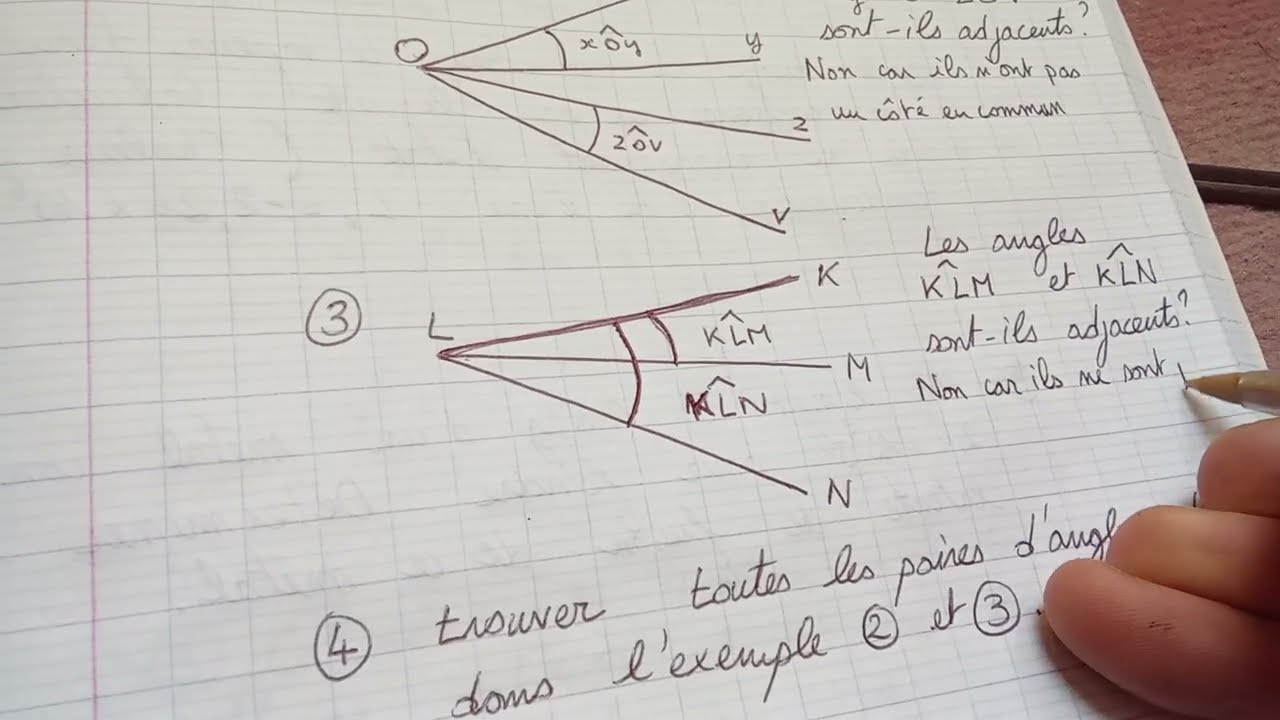 O
xÔy
y
sont-ils adjacents?
Non car ils n'ont pas
un côté en commun
z
zÔv
v
Les angles
KL̂M et KL̂N
sont-ils adjacents?
Non car ils ne sont
③
L
K
KL̂M
M
KL̂N
N
④ trouver toutes les paires d'angl
dans l'exemple ② et ③.